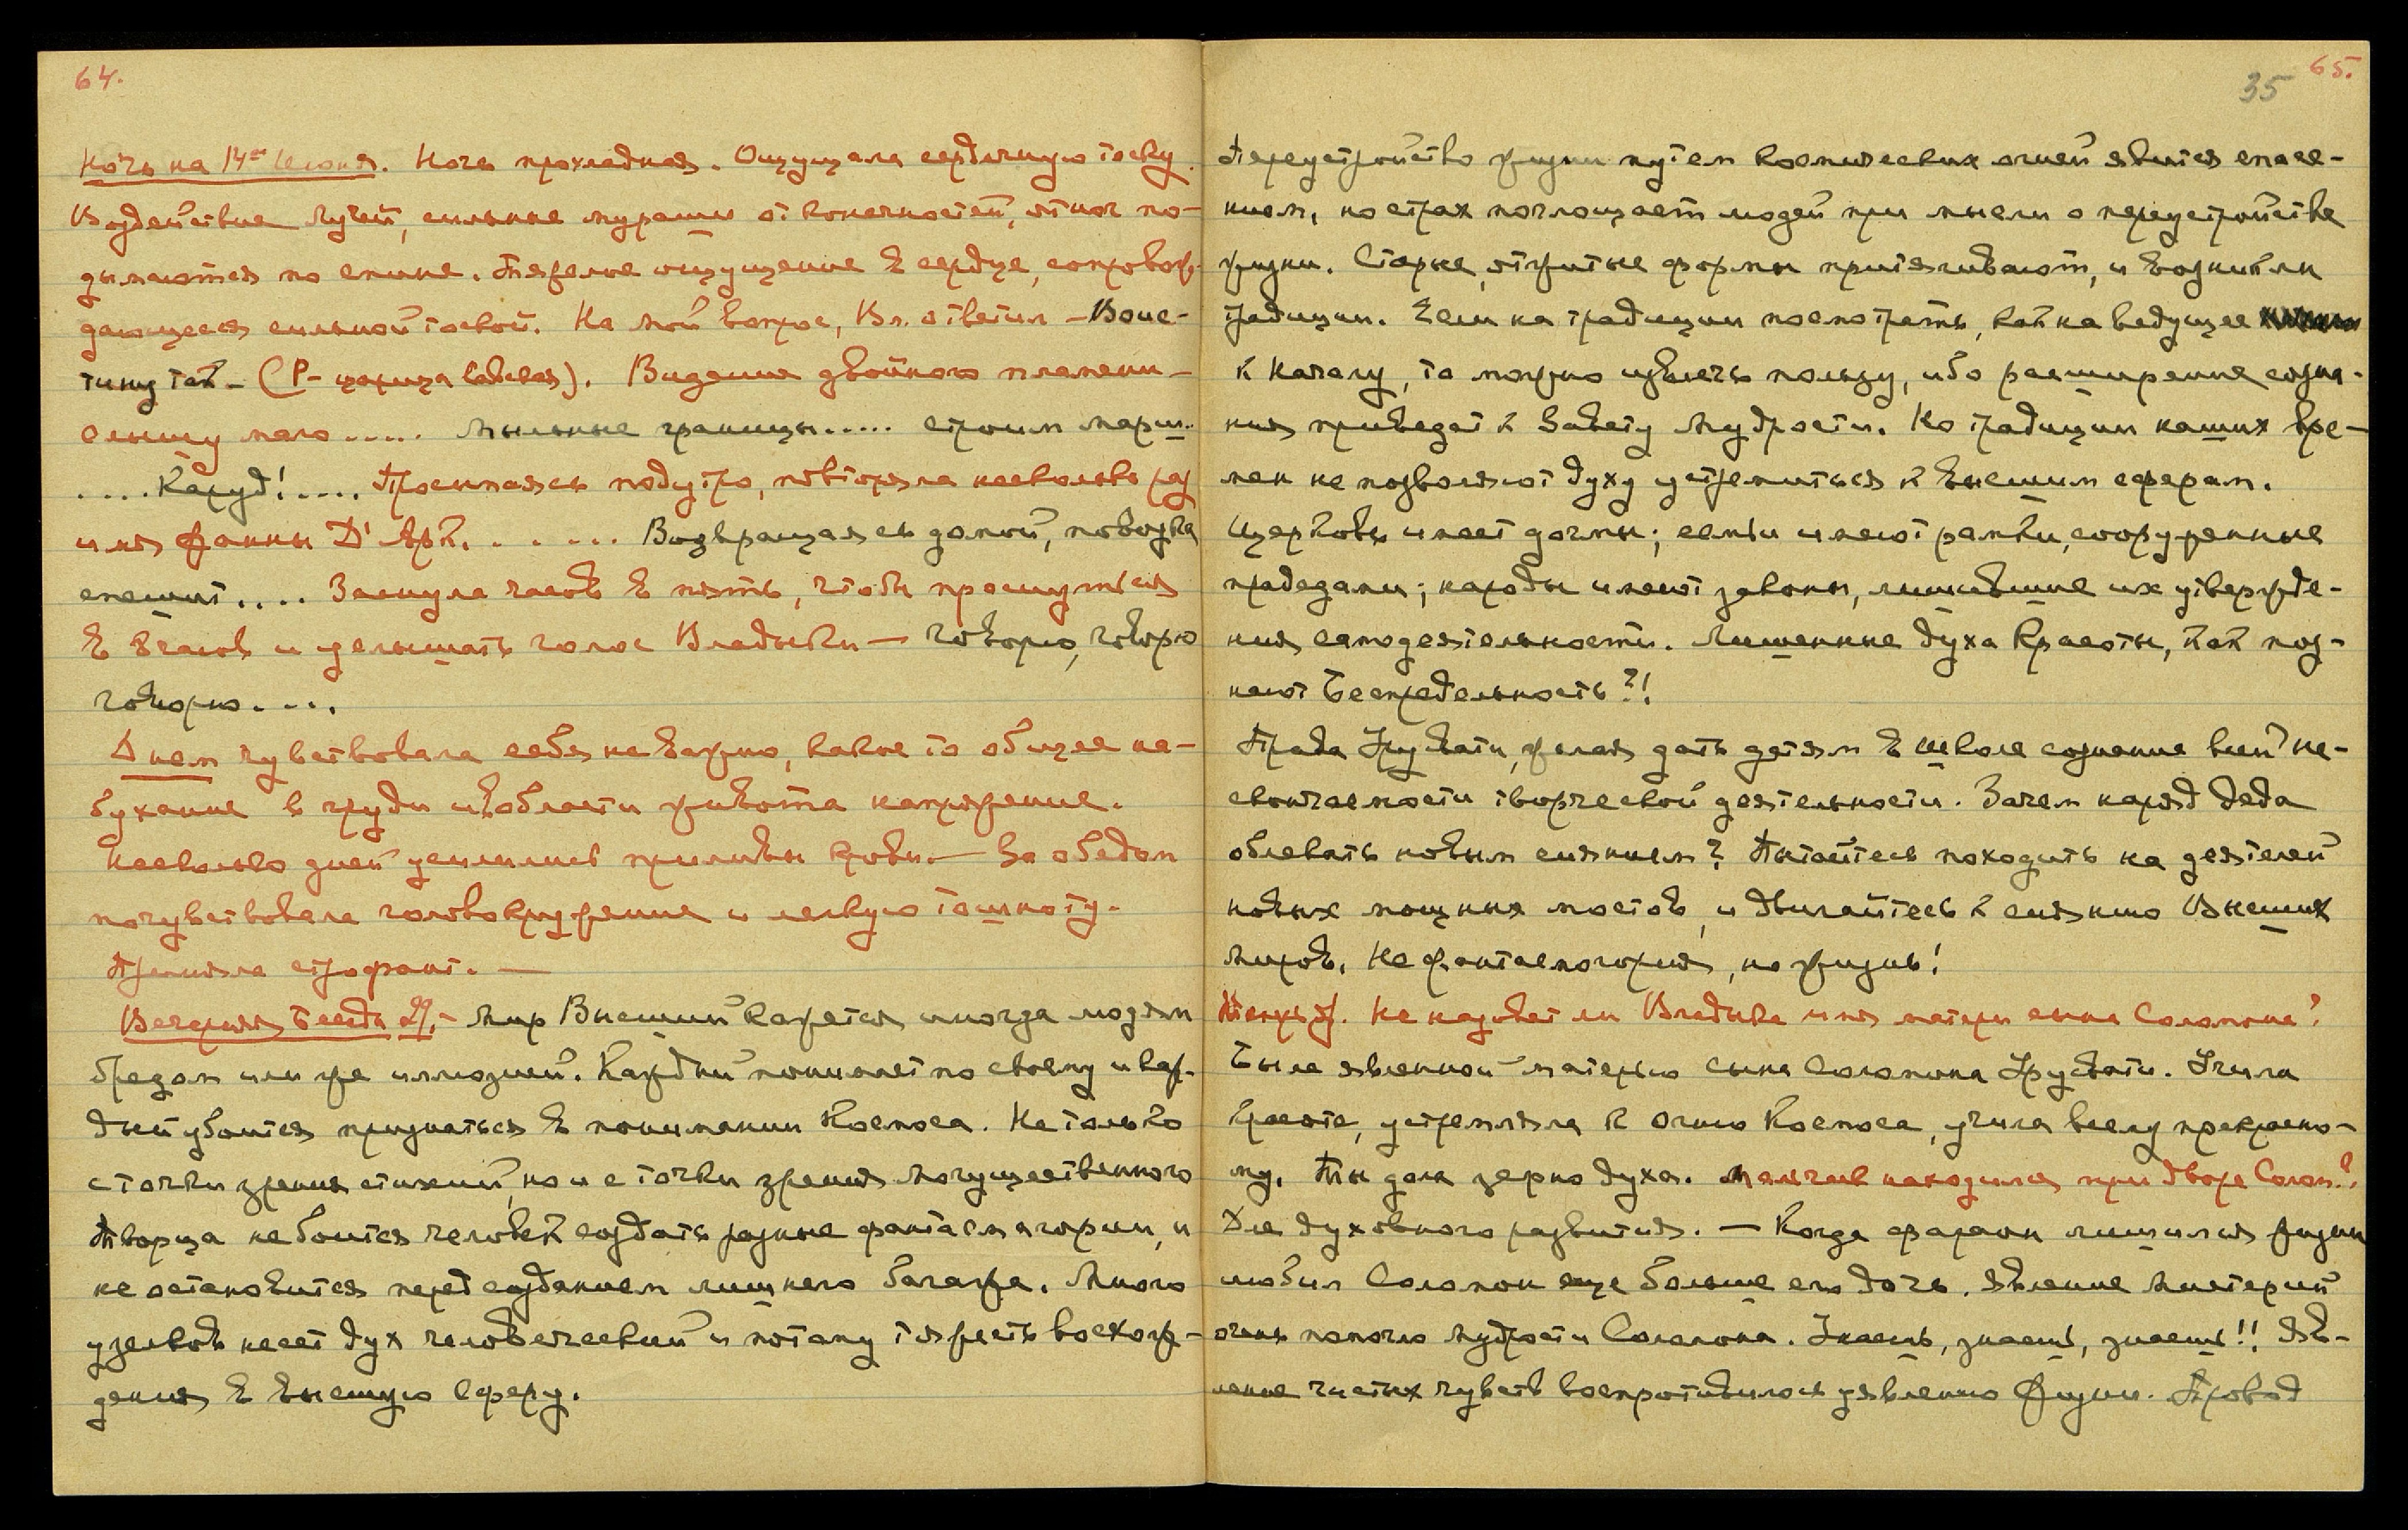 64.
Ночь на 14ое Июня. Ночь прохладная. Ощущала сердечную тоску.
Воздействие Лучей, сильные мураши от конечностей, от ног по-
дымаются по спине. Тяжелое ощущение в сердце, сопровож-
дающееся сильной тоской. На мой вопрос, Вл. ответил – Воис-
тину так – (Р – царица). Видение двойного пламени –
Слышу мало ..... Мыльные границы ..... строим
.... Кажд! .... Просыпаясь подутро, повторяла несколько раз
имя Жанны Д'Арк. ..... Возвращаясь домой, повозка
спешит .... Заснула часов в пять, чтобы проснуться
в 8 часов и услышать голос Владыки – говорю, говорю
говорю ....
Днем чувствовала себя не важно, какое то общее на-
бухание в груди и в области живота напряжение.
Несколько дней усилились приливы крови. – За обедом
почувствовала головокружение и легкую тошноту.
Приняла строфант. —
Вечерняя Беседа 29. – Мир Высший кажется иногда людям
бредом или же иллюзией. Каждый понимает по своему и каж-
дый убоится признаться в понимании Космоса. Не только
с точки зрения стихий, но и с точки зрения Могущественного
Творца не боится человек создать разные фантасмагории, и
не остановится перед созданием лишнего багажа. Много
узелков несет дух человеческий и потому тяжесть восхож-
дения в высшую Сферу.
35 65.
Переустройство жизни путем космических огней явится спасе-
нием, но страх поглощает людей при мысли о переустройстве
жизни. Старые, отжитые формы притягивают, и возникли
традиции. Если на традиции посмотреть, как на ведущее
к Началу, то можно извлечь пользу, ибо расширение созна-
ния приведет к Завету Мудрости. Но традиции наших вре-
мен не позволяют духу устремиться к высшим сферам.
Церковь имеет догмы; семьи имеют рамки, сооруженные
прадедами; народы имеют законы, лишившие их утвержде-
ния самодеятельности. Лишенные духа Красоты, как поз-
нают Беспредельность?!
Права Урусвати, желая дать детям в школе сознание всей не-
скончаемости творческой деятельности. Зачем наряд деда
облекать новым сиянием? Пытайтесь походить на деятелей
новых мощных мостов, и двигайтесь к сиянию Высших
Миров. Не фантасмагория, но жизнь!
Не назовет ли Владыка имя матери сына Соломона?
Была явленной матерью сына Соломона Урусвати. Учила
красоте, устремляла к Огню Космоса, учила всему прекрасно-
му. Ты дала зерно духа. Мальчик находился при дворе Солом.?
Для духовного развития. — Когда фараон лишился жизни
любил Соломон еще больше его дочь. Явление Мистерий
очень помогло мудрости Соломона. Знаешь, знаешь, знаешь!! Яв-
ление чистых чувств воспротивилось уявлению Жизни. Провод